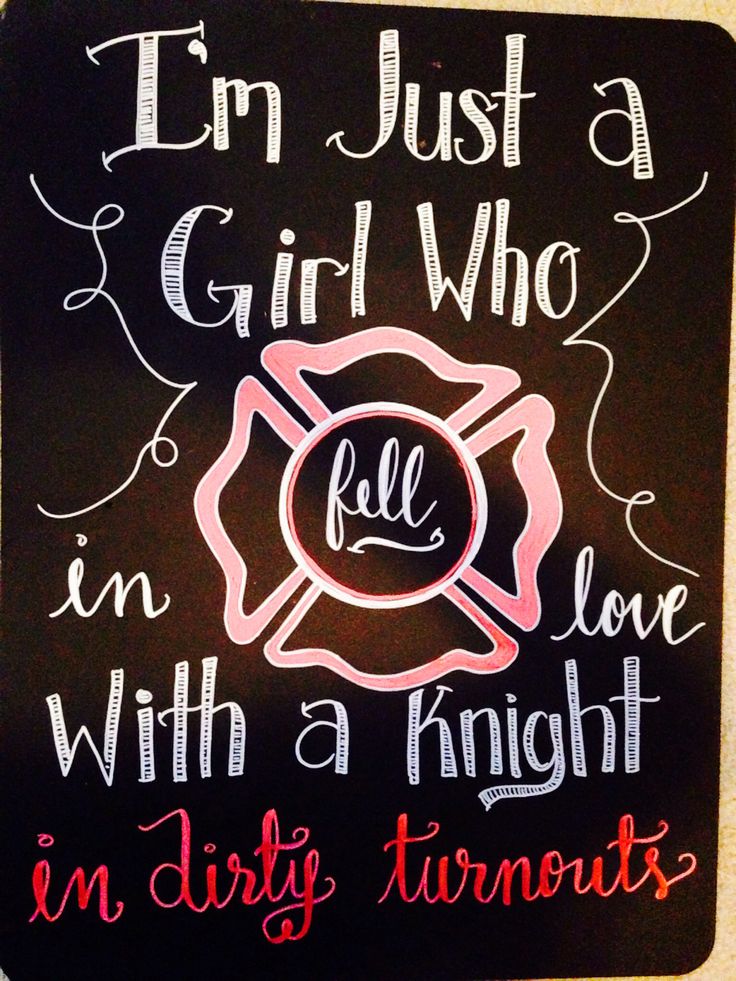 I'm Just a
Girl Who
fell
in love
With a Knight
in dirty turnouts